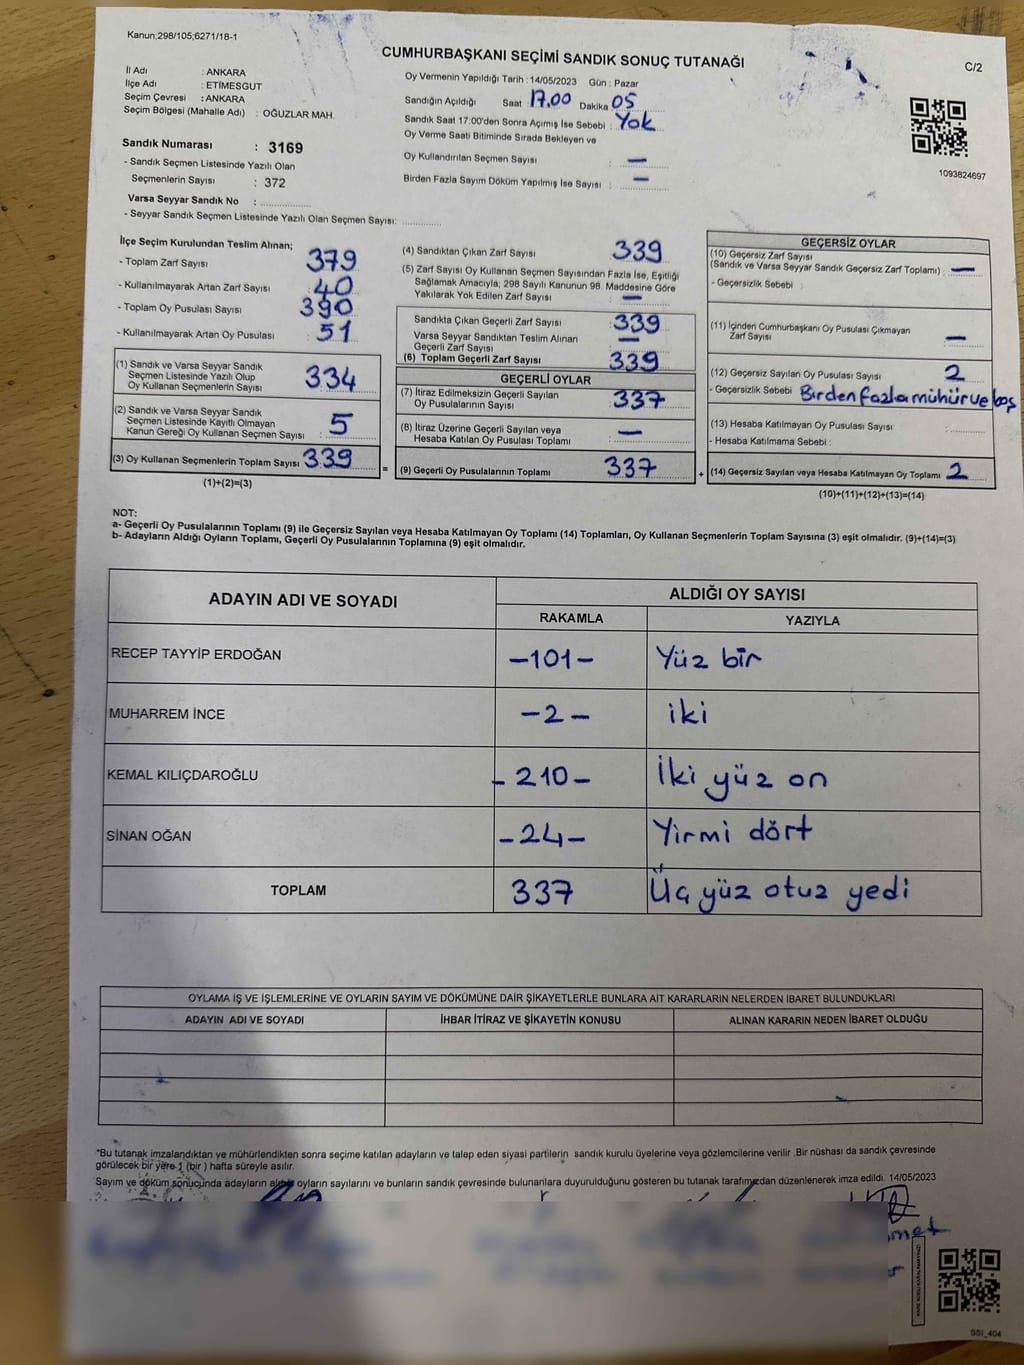 Kanun;298/105;6271/18-1
CUMHURBAŞKANI SEÇİMİ SANDIK SONUÇ TUTANAĞI
C/2
İl Adı : ANKARA
İlçe Adı : ETİMESGUT
Seçim Çevresi : ANKARA
Seçim Bölgesi (Mahalle Adı) : OĞUZLAR MAH.
Sandık Numarası : 3169
- Sandık Seçmen Listesinde Yazılı Olan
Seçmenlerin Sayısı : 372
Varsa Seyyar Sandık No :
- Seyyar Sandık Seçmen Listesinde Yazılı Olan Seçmen Sayısı:
Oy Vermenin Yapıldığı Tarih : 14/05/2023 Gün : Pazar
Sandığın Açıldığı Saat : 17.00 Dakika 05
Sandık Saat 17:00'den Sonra Açımış İse Sebebi : Yok
Oy Verme Saati Bitiminde Sırada Bekleyen ve
Oy Kullandırılan Seçmen Sayısı : —
Birden Fazla Sayım Döküm Yapılmış İse Sayısı : —
1093824697
İlçe Seçim Kurulundan Teslim Alınan;
- Toplam Zarf Sayısı : 379
- Kullanılmayarak Artan Zarf Sayısı : 40
- Toplam Oy Pusulası Sayısı : 390
- Kullanılmayarak Artan Oy Pusulası : 51
(1) Sandık ve Varsa Seyyar Sandık
Seçmen Listesinde Yazılı Olup
Oy Kullanan Seçmenlerin Sayısı : 334
(2) Sandık ve Varsa Seyyar Sandık
Seçmen Listesinde Kayıtlı Olmayan
Kanun Gereği Oy Kullanan Seçmen Sayısı : 5
(3) Oy Kullanan Seçmenlerin Toplam Sayısı : 339
(1)+(2)=(3)
=
(4) Sandıktan Çıkan Zarf Sayısı : 339
(5) Zarf Sayısı Oy Kullanan Seçmen Sayısından Fazla İse, Eşitliği
Sağlamak Amacıyla; 298 Sayılı Kanunun 98. Maddesine Göre
Yakılarak Yok Edilen Zarf Sayısı : —
Sandıkta Çıkan Geçerli Zarf Sayısı : 339
Varsa Seyyar Sandıktan Teslim Alınan
Geçerli Zarf Sayısı : —
(6) Toplam Geçerli Zarf Sayısı : 339
GEÇERLİ OYLAR
(7) İtiraz Edilmeksizin Geçerli Sayılan
Oy Pusulalarının Sayısı : 337
(8) İtiraz Üzerine Geçerli Sayılan veya
Hesaba Katılan Oy Pusulası Toplamı : —
(9) Geçerli Oy Pusulalarının Toplamı : 337
+
GEÇERSİZ OYLAR
(10) Geçersiz Zarf Sayısı
(Sandık ve Varsa Seyyar Sandık Geçersiz Zarf Toplamı) : —
- Geçersizlik Sebebi :
(11) İçinden Cumhurbaşkanı Oy Pusulası Çıkmayan
Zarf Sayısı : —
(12) Geçersiz Sayılan Oy Pusulası Sayısı : 2
- Geçersizlik Sebebi : Birden fazla mühür ve boş
(13) Hesaba Katılmayan Oy Pusulası Sayısı :
- Hesaba Katılmama Sebebi :
(14) Geçersiz Sayılan veya Hesaba Katılmayan Oy Toplamı : 2
(10)+(11)+(12)+(13)=(14)
NOT:
a- Geçerli Oy Pusulalarının Toplamı (9) ile Geçersiz Sayılan veya Hesaba Katılmayan Oy Toplamı (14) Toplamları, Oy Kullanan Seçmenlerin Toplam Sayısına (3) eşit olmalıdır. (9)+(14)=(3)
b- Adayların Aldığı Oyların Toplamı, Geçerli Oy Pusulalarının Toplamına (9) eşit olmalıdır.
ADAYIN ADI VE SOYADI ALDIĞI OY SAYISI
RAKAMLA YAZIYLA
RECEP TAYYİP ERDOĞAN -101- Yüz bir
MUHARREM İNCE -2- iki
KEMAL KILIÇDAROĞLU -210- İki yüz on
SİNAN OĞAN -24- Yirmi dört
TOPLAM 337 Üç yüz otuz yedi
OYLAMA İŞ VE İŞLEMLERİNE VE OYLARIN SAYIM VE DÖKÜMÜNE DAİR ŞİKAYETLERLE BUNLARA AİT KARARLARIN NELERDEN İBARET BULUNDUKLARI
ADAYIN ADI VE SOYADI İHBAR İTİRAZ VE ŞİKAYETİN KONUSU ALINAN KARARIN NEDEN İBARET OLDUĞU
*Bu tutanak imzalandıktan ve mühürlendikten sonra seçime katılan adayların ve talep eden siyasi partilerin sandık kurulu üyelerine veya gözlemcilerine verilir .Bir nüshası da sandık çevresinde
görülecek bir yere 1 (bir ) hafta süreyle asılır.
Sayım ve döküm sonucunda adayların aldığı oyların sayılarını ve bunların sandık çevresinde bulunanlara duyurulduğunu gösteren bu tutanak tarafımızdan düzenlenerek imza edildi. 14/05/2023
SSI_404